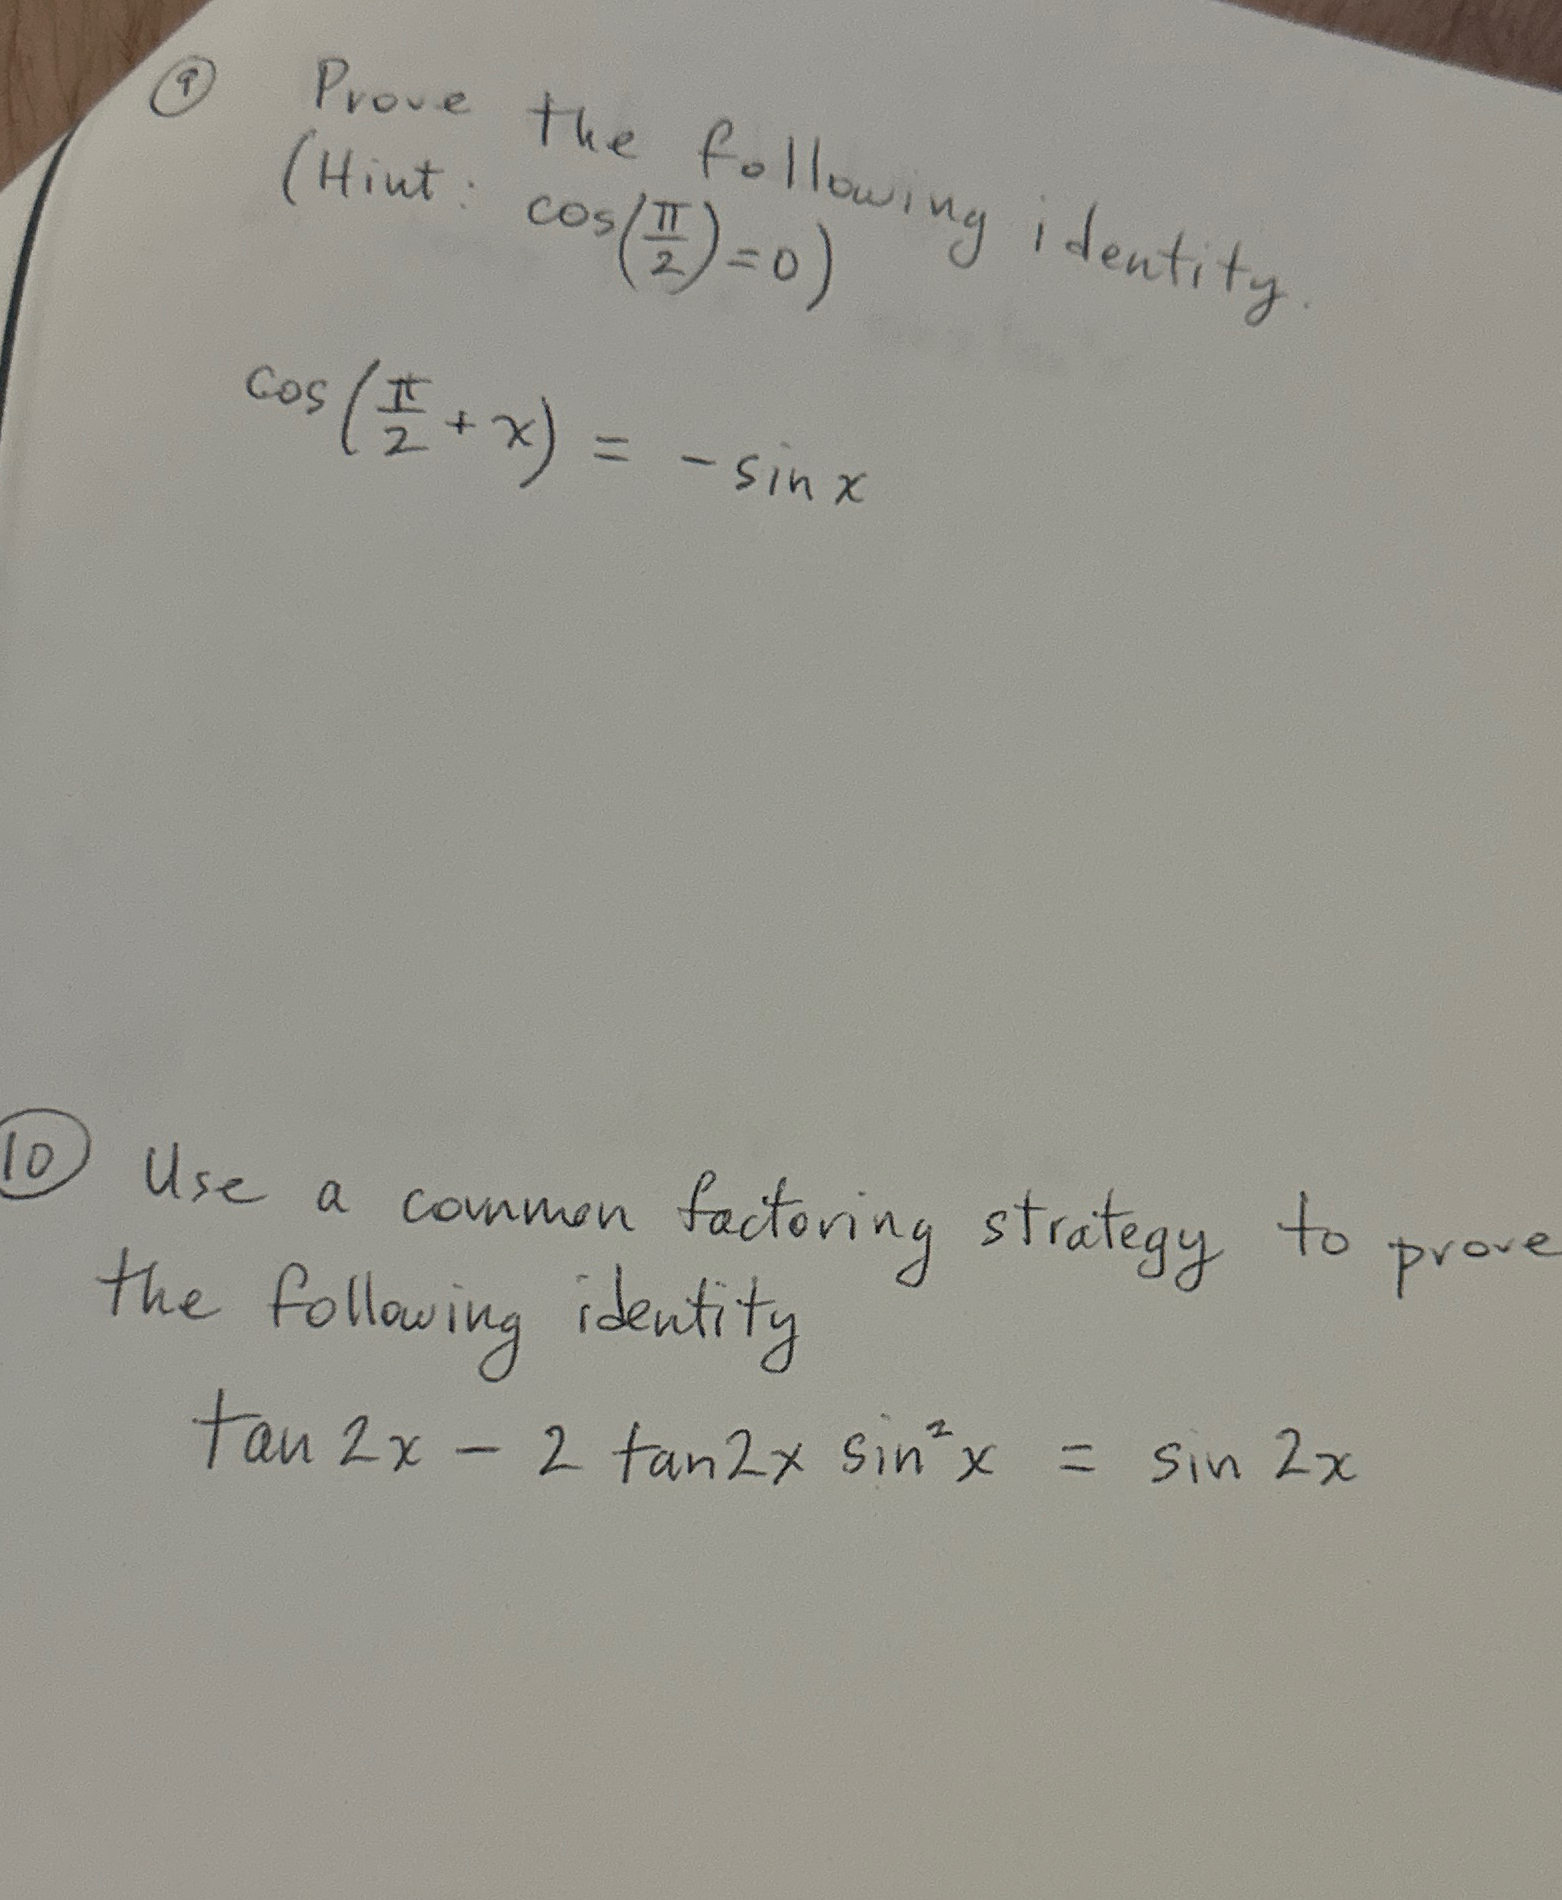 ⑨ Prove the following identity.
(Hint: cos(π/2)=0)
cos(π/2 + x) = - sin x
⑩ Use a common factoring strategy to prove
the following identity
tan 2x - 2 tan2x sin²x = sin 2x